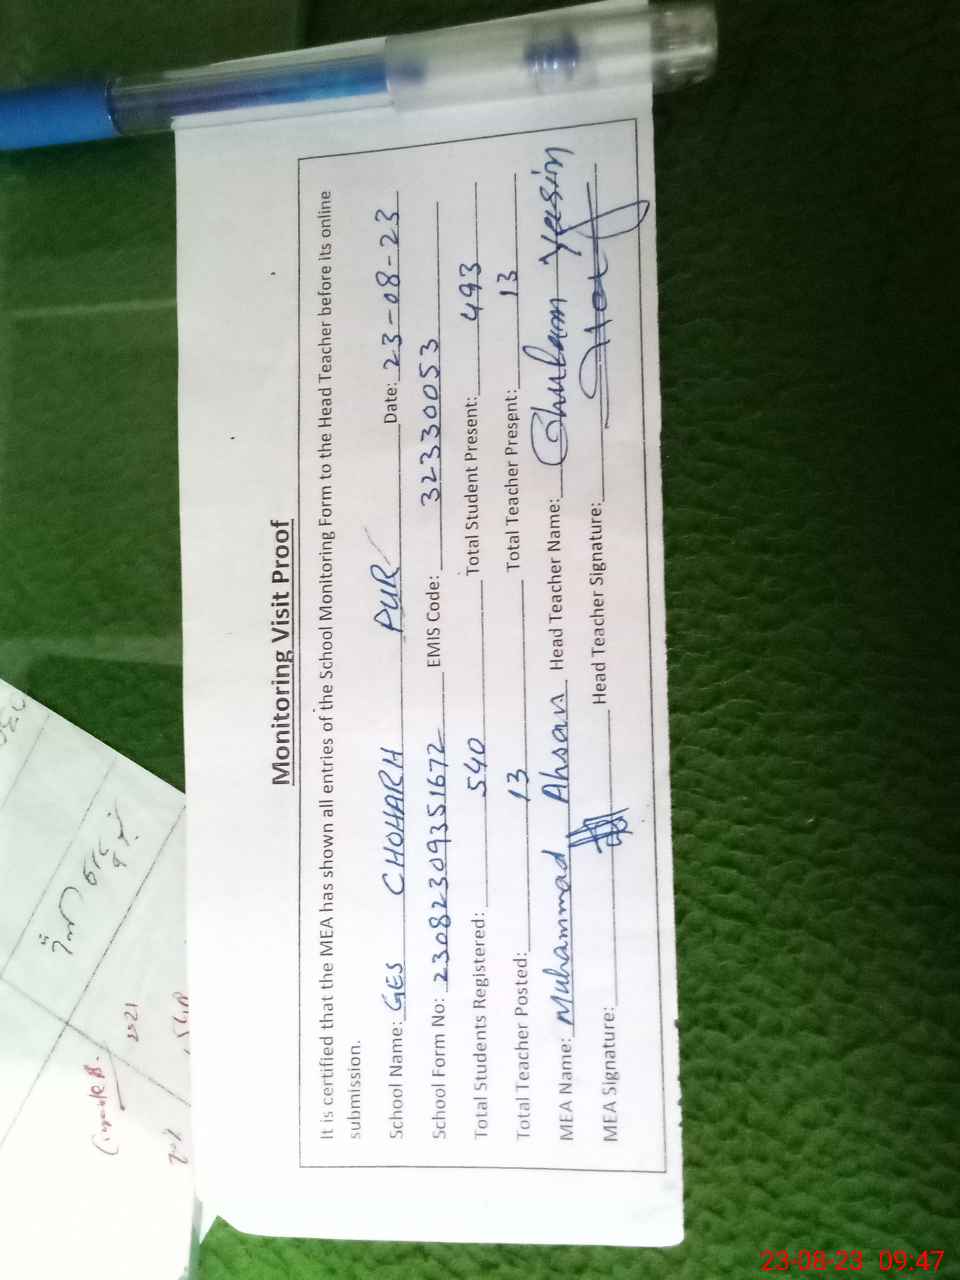 Monitoring Visit Proof
It is certified that the MEA has shown all entries of the School Monitoring Form to the Head Teacher before its online
submission.
School Name: GES CHOHARH PUR Date: 23-08-23
School Form No: 23082309351672 EMIS Code: 32330053
Total Students Registered: 540 Total Student Present: 493
Total Teacher Posted: 13 Total Teacher Prespnt: 13
MEA Name: Muhammad Ahsan Head Teacher Name: Ghulam Yasin
MEA Signature: Head Teacher Signature:
23-08-23 09:47